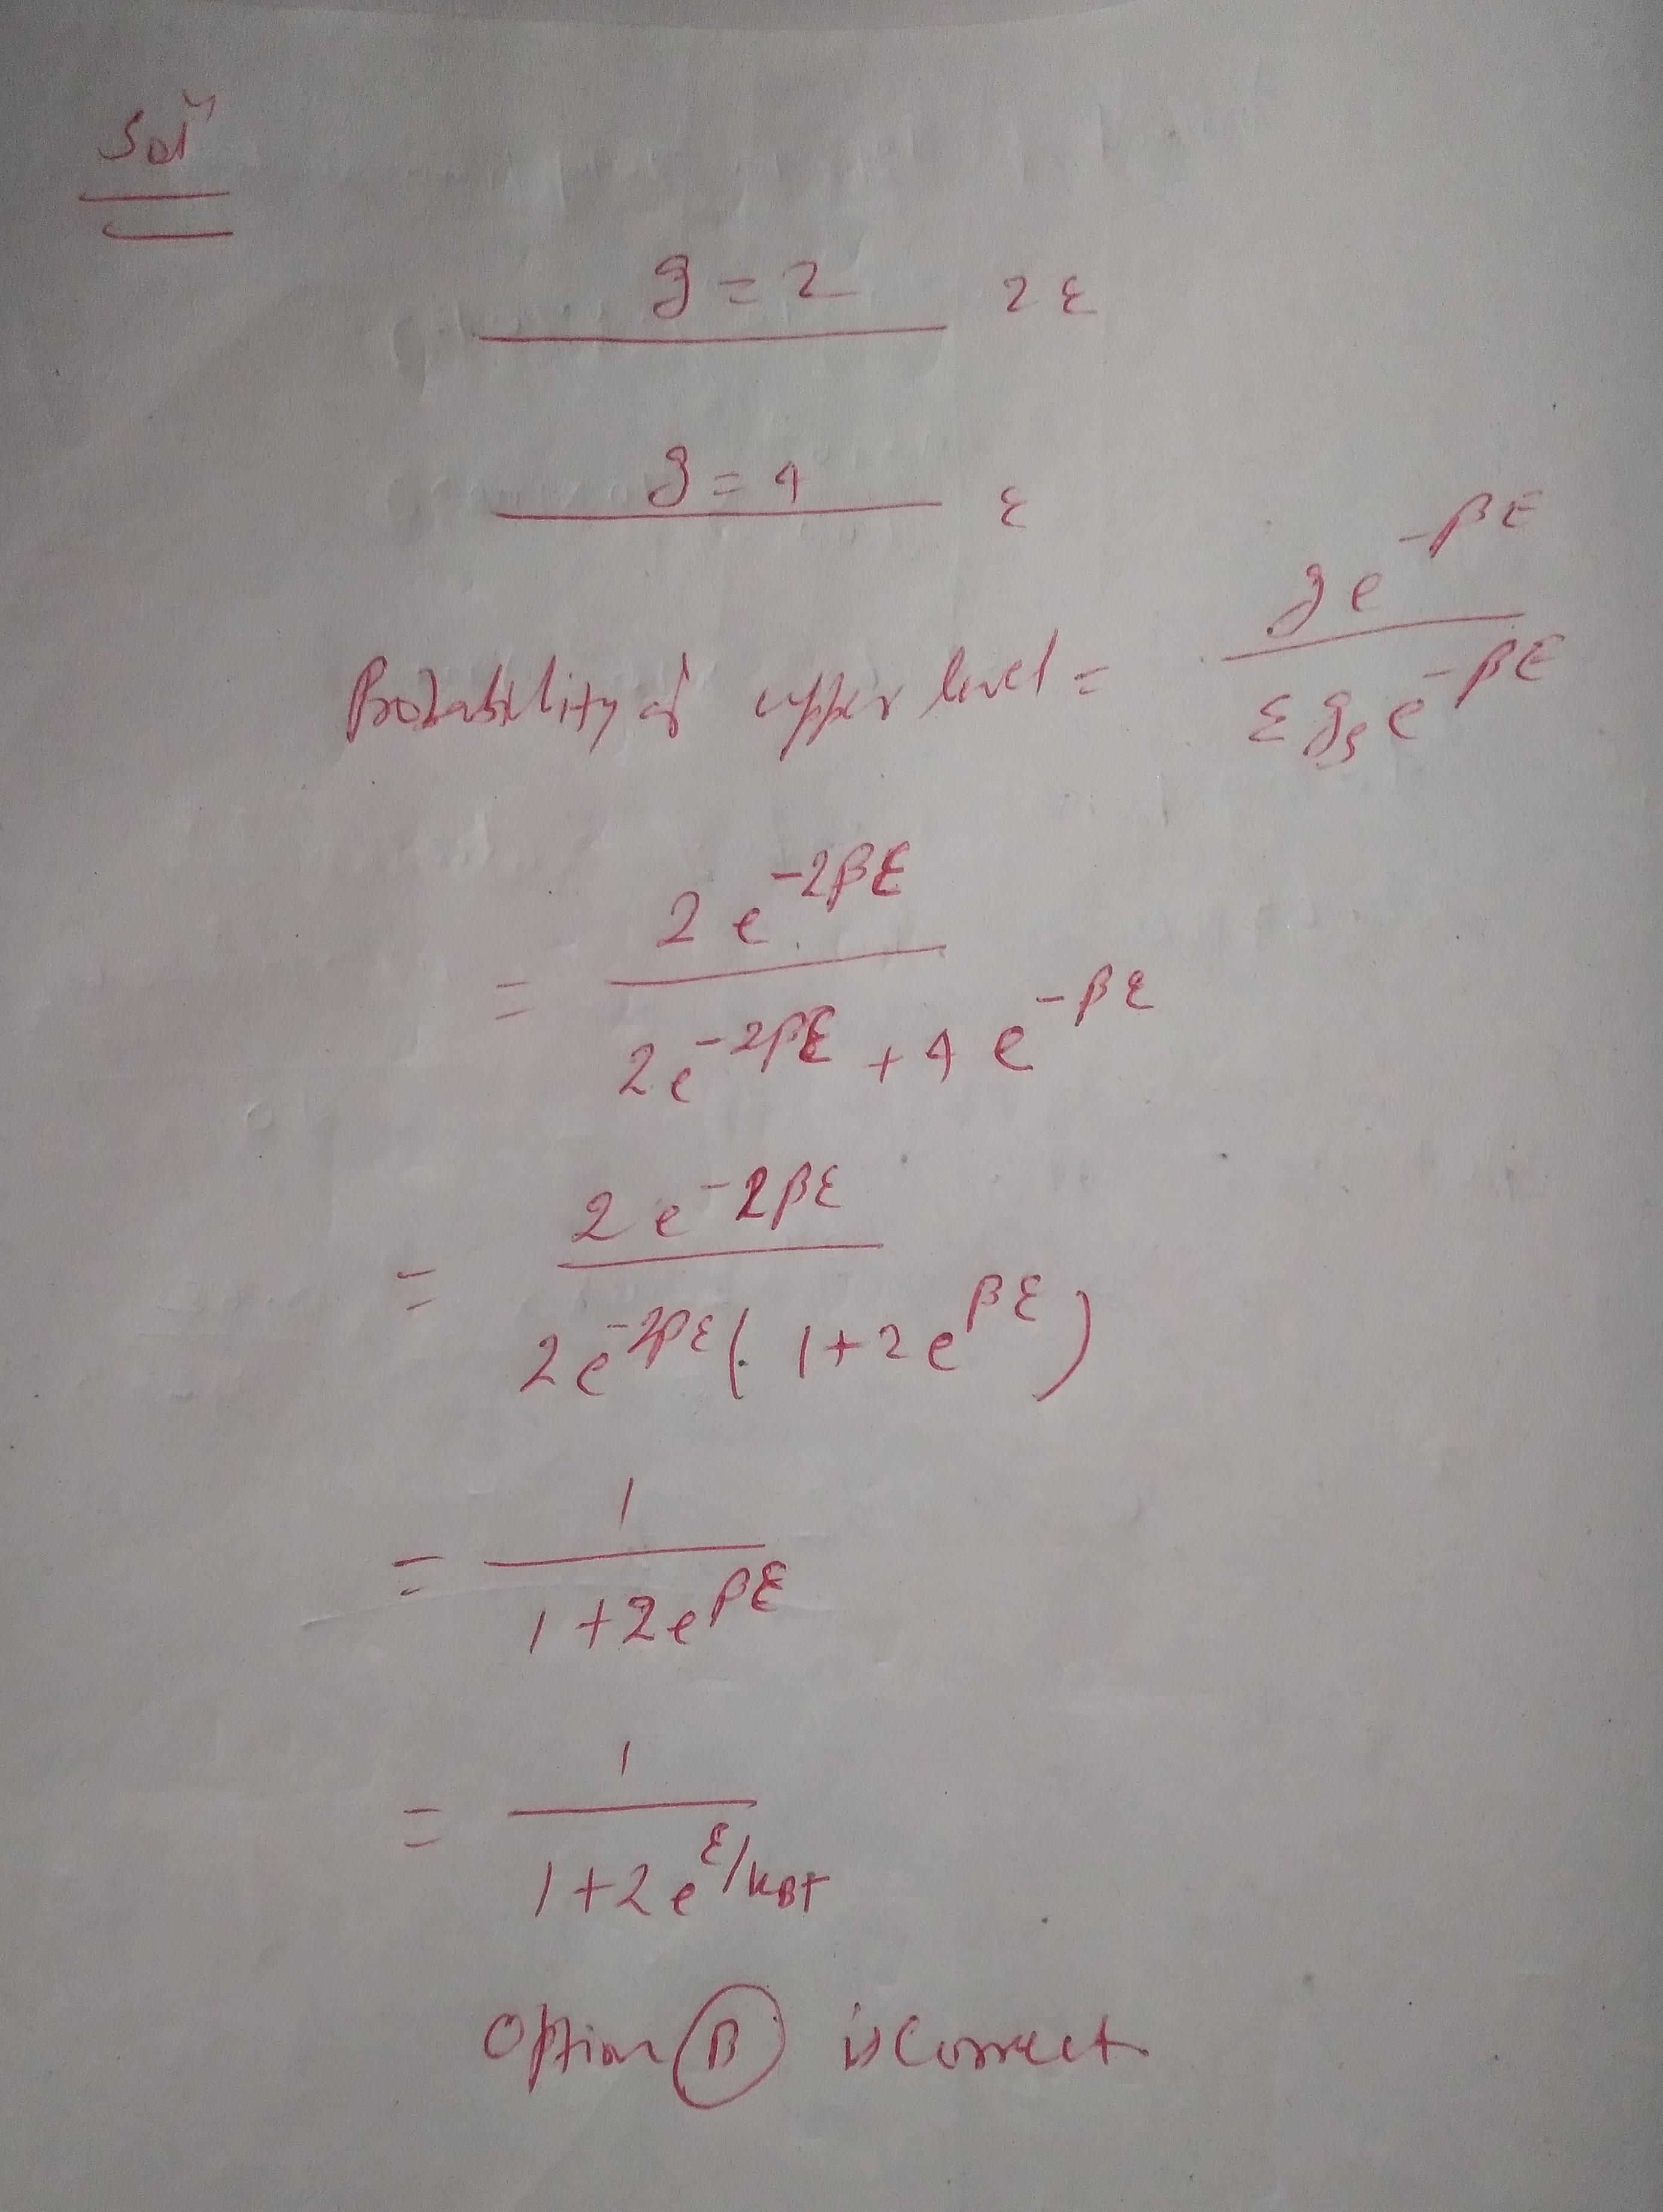 Solⁿ
g = 2 2ε
g = 4 ε
Probability of upper level = g e^{-βE} / Σ g_s e^{-βE}
= 2 e^{-2βε} / 2 e^{-2βε} + 4 e^{-βε}
= 2 e^{-2βε} / 2 e^{-2βε} ( 1 + 2 e^{βε} )
= 1 / 1 + 2 e^{βε}
= 1 / 1 + 2 e^{ε/k_BT}
Option B is correct